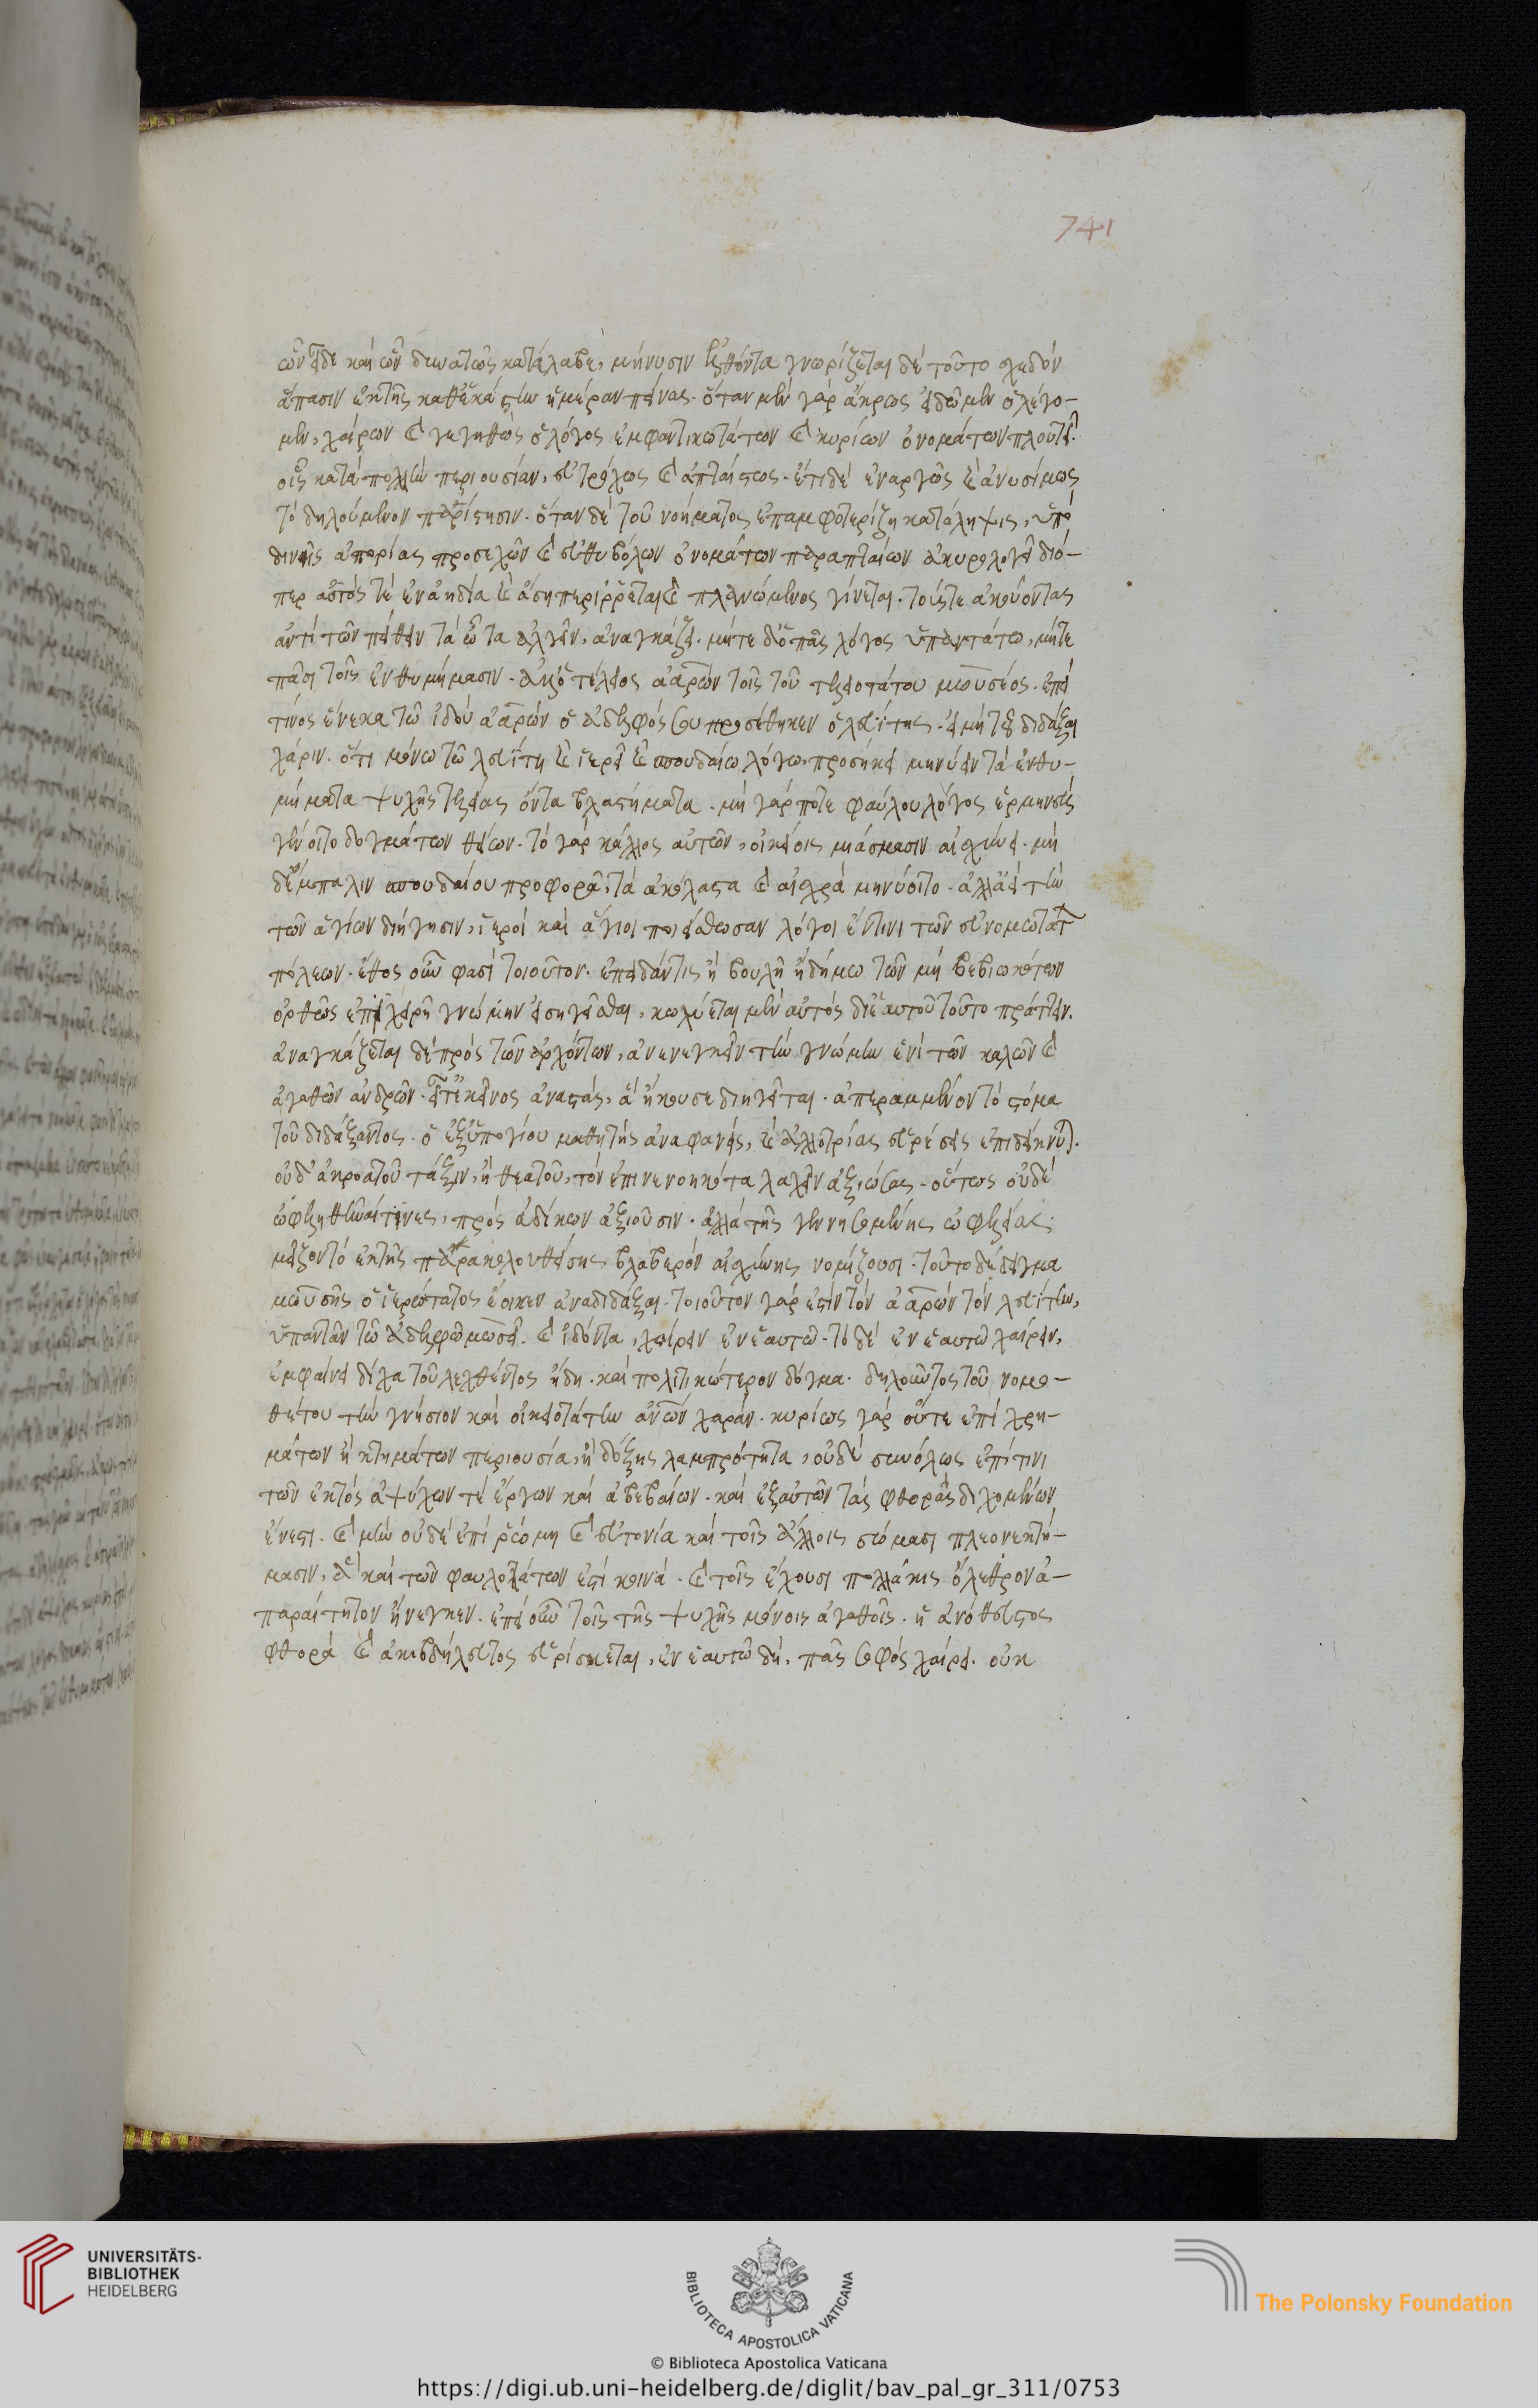 741
ὧν εἶδε καὶ ὧν δυνατῶς κατέλαβε, μήνυσιν ἐλθόντα γνωρίζεται δὲ τοῦτο σχεδὸν
ἅπασιν ἐκ τῆς καθ' ἑκάστην ἡμέραν πείνας. ὅταν μὲν γὰρ ἄκρως εἰδῶμεν ὃ λέγο-
μεν, χαίρων καὶ γεγηθὼς ὁ λόγος ἐμφαντικωτάτων καὶ κυρίων ὀνομάτων πλουτεῖ.
οἷς κατὰ πολλὴν περιουσίαν, εὐτρόχως καὶ ἀπταίστως. ἔτι δὲ ἐναργῶς καὶ ἀνυσίμως
τὸ δηλούμενον παρίστησιν. ὅταν δὲ τοῦ νοήματος ἐπαμφοτερίζῃ κατάληψις, ὑπὸ
δεινῆς ἀπορίας προσεχῶν καὶ εὐθυβόλων ὀνομάτων παραπταίων ἀκυρολογεῖ διό-
περ αὐτός τε ἐν ἀηδία καὶ ἄση περιρρεῖται καὶ πλανώμενος γίνεται. τούς τε ἀκούοντας
ἀντὶ τῶν πείθειν τὰ ὦτα ἀλγεῖν, ἀναγκάζει. μήτε δὲ ὁ πᾶς λόγος ὑπαντάτω, μήτε
πᾶσι τοῖς ἐνθυμήμασιν. ἀλλ' ὁ τέλειος ἀαρὼν τοῖς τοῦ τελειοτάτου μωυσέος. ἐπεὶ
τίνος ἕνεκα τῶ ἰδοὺ ἀαρὼν ὁ ἀδελφός σου προσέθηκεν ὁ λευίτης. εἰ μὴ τοῦ διδάξαι
χάριν. ὅτι μόνω τῶ λευίτη καὶ ἱερεῖ καὶ σπουδαίω λόγω, προσήκει μηνύειν τὰ ἐνθυ-
μήματα ψυχῆς τελείας ὄντα βλαστήματα. μὴ γάρ ποτε φαύλου λόγος ἑρμηνεὺς
γένοιτο δογμάτων θείων. τὸ γὰρ κάλλος αὐτῶν, οἰκείοις μιάσμασιν αἰσχύνει. μὴ
δ' ἔμπαλιν σπουδαίου προφορᾶ, τὰ ἀκόλαστα καὶ αἰσχρὰ μηνύοιτο. ἀλλ' ἀεὶ τὴν
τῶν ἁγίων διήγησιν, ἱεροὶ καὶ ἅγιοι ποιείσθωσαν λόγοι ἔν τινι τῶν εὐνομωτάτ
πόλεων. ἔθος οὖν φασὶ τοιοῦτον. ἐπειδάν τις ἢ βουλῆ ἢ δήμω τῶν μὴ βεβιωκότων
ὀρθῶς ἐπιχειρῆ γνώμην εἰσηγεῖσθαι, κωλύεται μὲν αὐτὸς δι' ἑαυτοῦ τοῦτο πράττειν.
ἀναγκάζεται δὲ πρὸς τῶν ἀρχόντων, ἀνενεγκεῖν τὴν γνώμην ἑνὶ τῶν καλῶν καὶ
ἀγαθῶν ἀνδρῶν. εἶτ' ἐκεῖνος ἀναστὰς, ἃ ἤκουσε διηγεῖται. ἀπεραμμένον τὸ στόμα
τοῦ διδάξαντος. ὁ ἐξ ὑπογίου μαθητὴς ἀναφανεὶς, καὶ ἀλλοτρίας εὑρέσεις ἐπιδείκνυται.
οὐδ' ἀκροατοῦ τάξιν, ἢ θεατοῦ, τὸν ἐπινενοηκότα λαχεῖν ἀξιώσας. οὕτως οὐδὲ
ὠφεληθῆναί τινες, πρὸς ἀδίκων ἀξιοῦσιν. ἀλλὰ τῆς γεννησομένης ὠφελείας;
μεῖζον τὸ ἐκ τῆς παρακολουθείσης βλαβερὸν αἰσχύνης νομίζουσι. τοῦτο δεῖγμα
μωυσῆς ὁ ἱερώτατος ἔοικεν ἀναδιδάξαι. τοιοῦτον γάρ ἐστιν τὸν ἀαρὼν τὸν λευίτην,
ὑπαντᾶν τῶ ἀδελφῶ μωσεῖ. καὶ ἰδόντα, χαίρειν ἐν ἑαυτῶ. τὸ δὲ ἐν ἑαυτῶ χαίρειν,
ἐμφαίνει δίχα τοῦ λεχθέντος ἤδη. καὶ πολιτικώτερον δόγμα. δηλοῦντος τοῦ νομο-
θέτου τὴν γνήσιον καὶ οἰκειοτάτην ἀνων χαράν. κυρίως γὰρ οὔτε ἐπὶ χρη-
μάτων ἢ κτημάτων περιουσία, ἢ δόξης λαμπρότητα, οὐδὲ συνόλως ἐπί τινι
τῶν ἐκτὸς ἀψύχων τὲ ἔργων καὶ ἀβεβαίων. καὶ ἐξ αὑτῶν τὰς φθορὰς δεχομένων
ἔνεστι. καὶ μὴν οὐδὲ ἐπὶ ῥώμη καὶ εὐτονία καὶ τοῖς ἄλλοις σώμασι πλεονεκτή-
μασιν, ἃ καὶ τῶν φαυλοτάτων ἐστὶ κοινά. καὶ τοῖς ἔχουσι πολλάκις ὄλεθρον ἀ-
παραίτητον ἤνεγκεν. ἐπεὶ οὖν τοῖς τῆς ψυχῆς μόνοις ἀγαθοῖς. ἡ ἀνόθευτος
φθορὰ καὶ ἀκιβδήλευτος εὑρίσκεται, ἐν ἑαυτῶ δὴ, πᾶς σοφὸς χαίρει. οὐκ
UNIVERSITÄTS-
BIBLIOTHEK
HEIDELBERG
BIBLIOTECA APOSTOLICA VATICANA
© Biblioteca Apostolica Vaticana
The Polonsky Foundation
https://digi.ub.uni-heidelberg.de/diglit/bav_pal_gr_311/0753